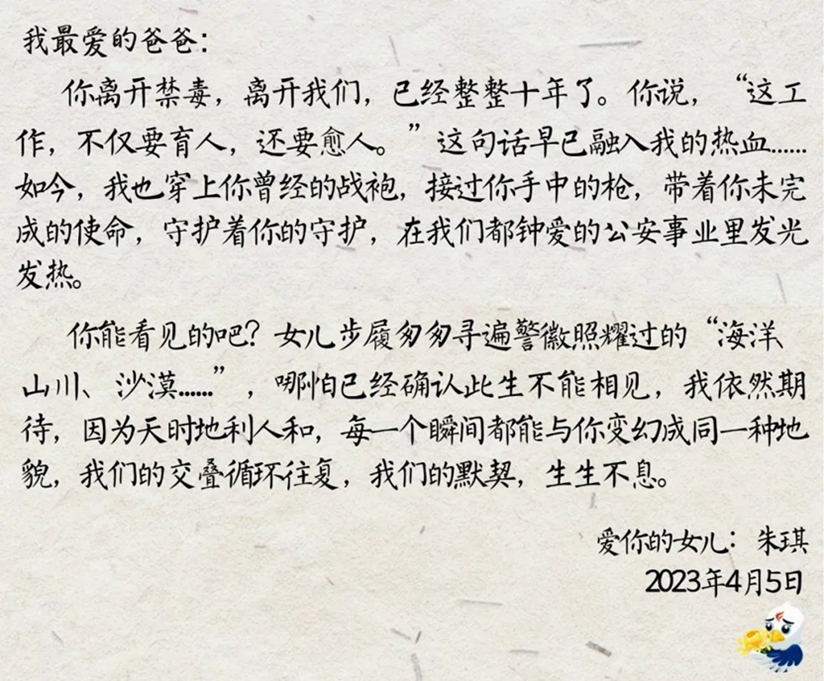 我最爱的爸爸:
你离开禁毒，离开我们，已经整整十年了。你说，“这工
作，不仅要育人，还要愈人。”这句话早已融入我的热血......
如今，我也穿上你曾经的战袍，接过你手中的枪，带着你未完
成的使命，守护着你的守护，在我们都钟爱的公安事业里发光
发热。
你能看见的吧？女儿步履匆匆寻遍警徽照耀过的“海洋、
山川、沙漠......”，哪怕已经确认此生不能相见，我依然期
待，因为天时地利人和，每一个瞬间都能与你变幻成同一种地
貌，我们的交叠循环往复，我们的默契，生生不息。
爱你的女儿：朱琪
2023年4月5日